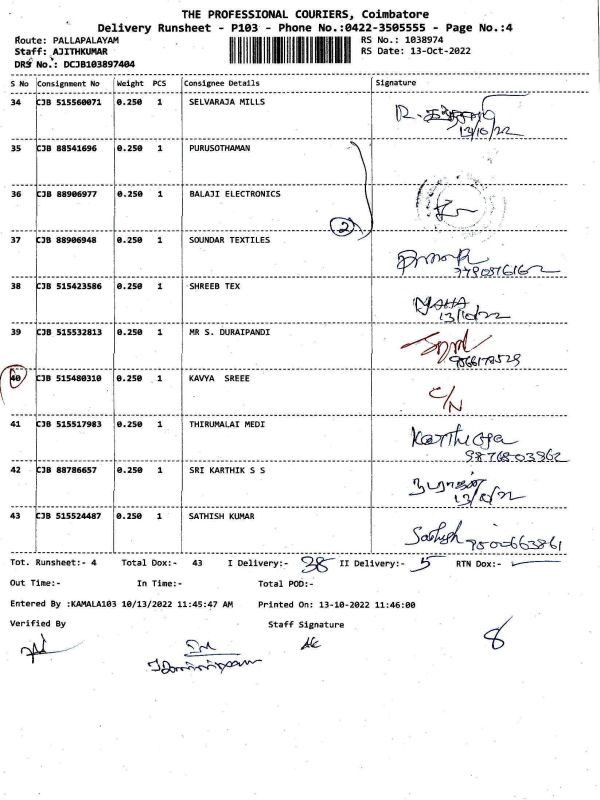 THE PROFESSIONAL COURIERS, Coimbatore
Delivery Runsheet - P103 - Phone No.:0422-3505555 - Page No.:4
Route: PALLAPALAYAM RS No.: 1038974
Staff: AJITHKUMAR RS Date: 13-Oct-2022
DRS No.: DCJB103897404
S No Consignment No Weight PCS Consignee Details Signature
34 CJB 515560071 0.250 1 SELVARAJA MILLS
13/10/22
35 CJB 88541696 0.250 1 PURUSOTHAMAN
36 CJB 88906977 0.250 1 BALAJI ELECTRONICS
2
37 CJB 88906948 0.250 1 SOUNDAR TEXTILES
38 CJB 515423586 0.250 1 SHREEB TEX
13/10/22
39 CJB 515532813 0.250 1 MR S. DURAIPANDI
40 CJB 515480310 0.250 1 KAVYA SREEE C/N
41 CJB 515517983 0.250 1 THIRUMALAI MEDI
9876803962
42 CJB 88786657 0.250 1 SRI KARTHIK S S
43 CJB 515524487 0.250 1 SATHISH KUMAR Sathish
9500663861
Tot. Runsheet:- 4 Total Dox:- 43 I Delivery:- 38 II Delivery:- 5 RTN Dox:-
Out Time:- In Time:- Total POD:-
Entered By :KAMALA103 10/13/2022 11:45:47 AM Printed On: 13-10-2022 11:46:00
Verified By Staff Signature
8